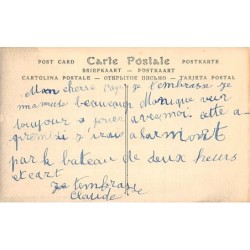 POST CARD Carte Postale POSTKARTE
BRIEFKAART — POSTKAART
CARTOLINA POSTALE — ОТКРЫТОЕ ПИСЬМО — TARJETA POSTAL
Mon cherre je t'embrasse je
m'amuse beaucoup Monique veux
toujour jouer avec moi cette a
premidi j'irais a
par le bateau de deux heurs
et cart
Je t'embrasse
Claude